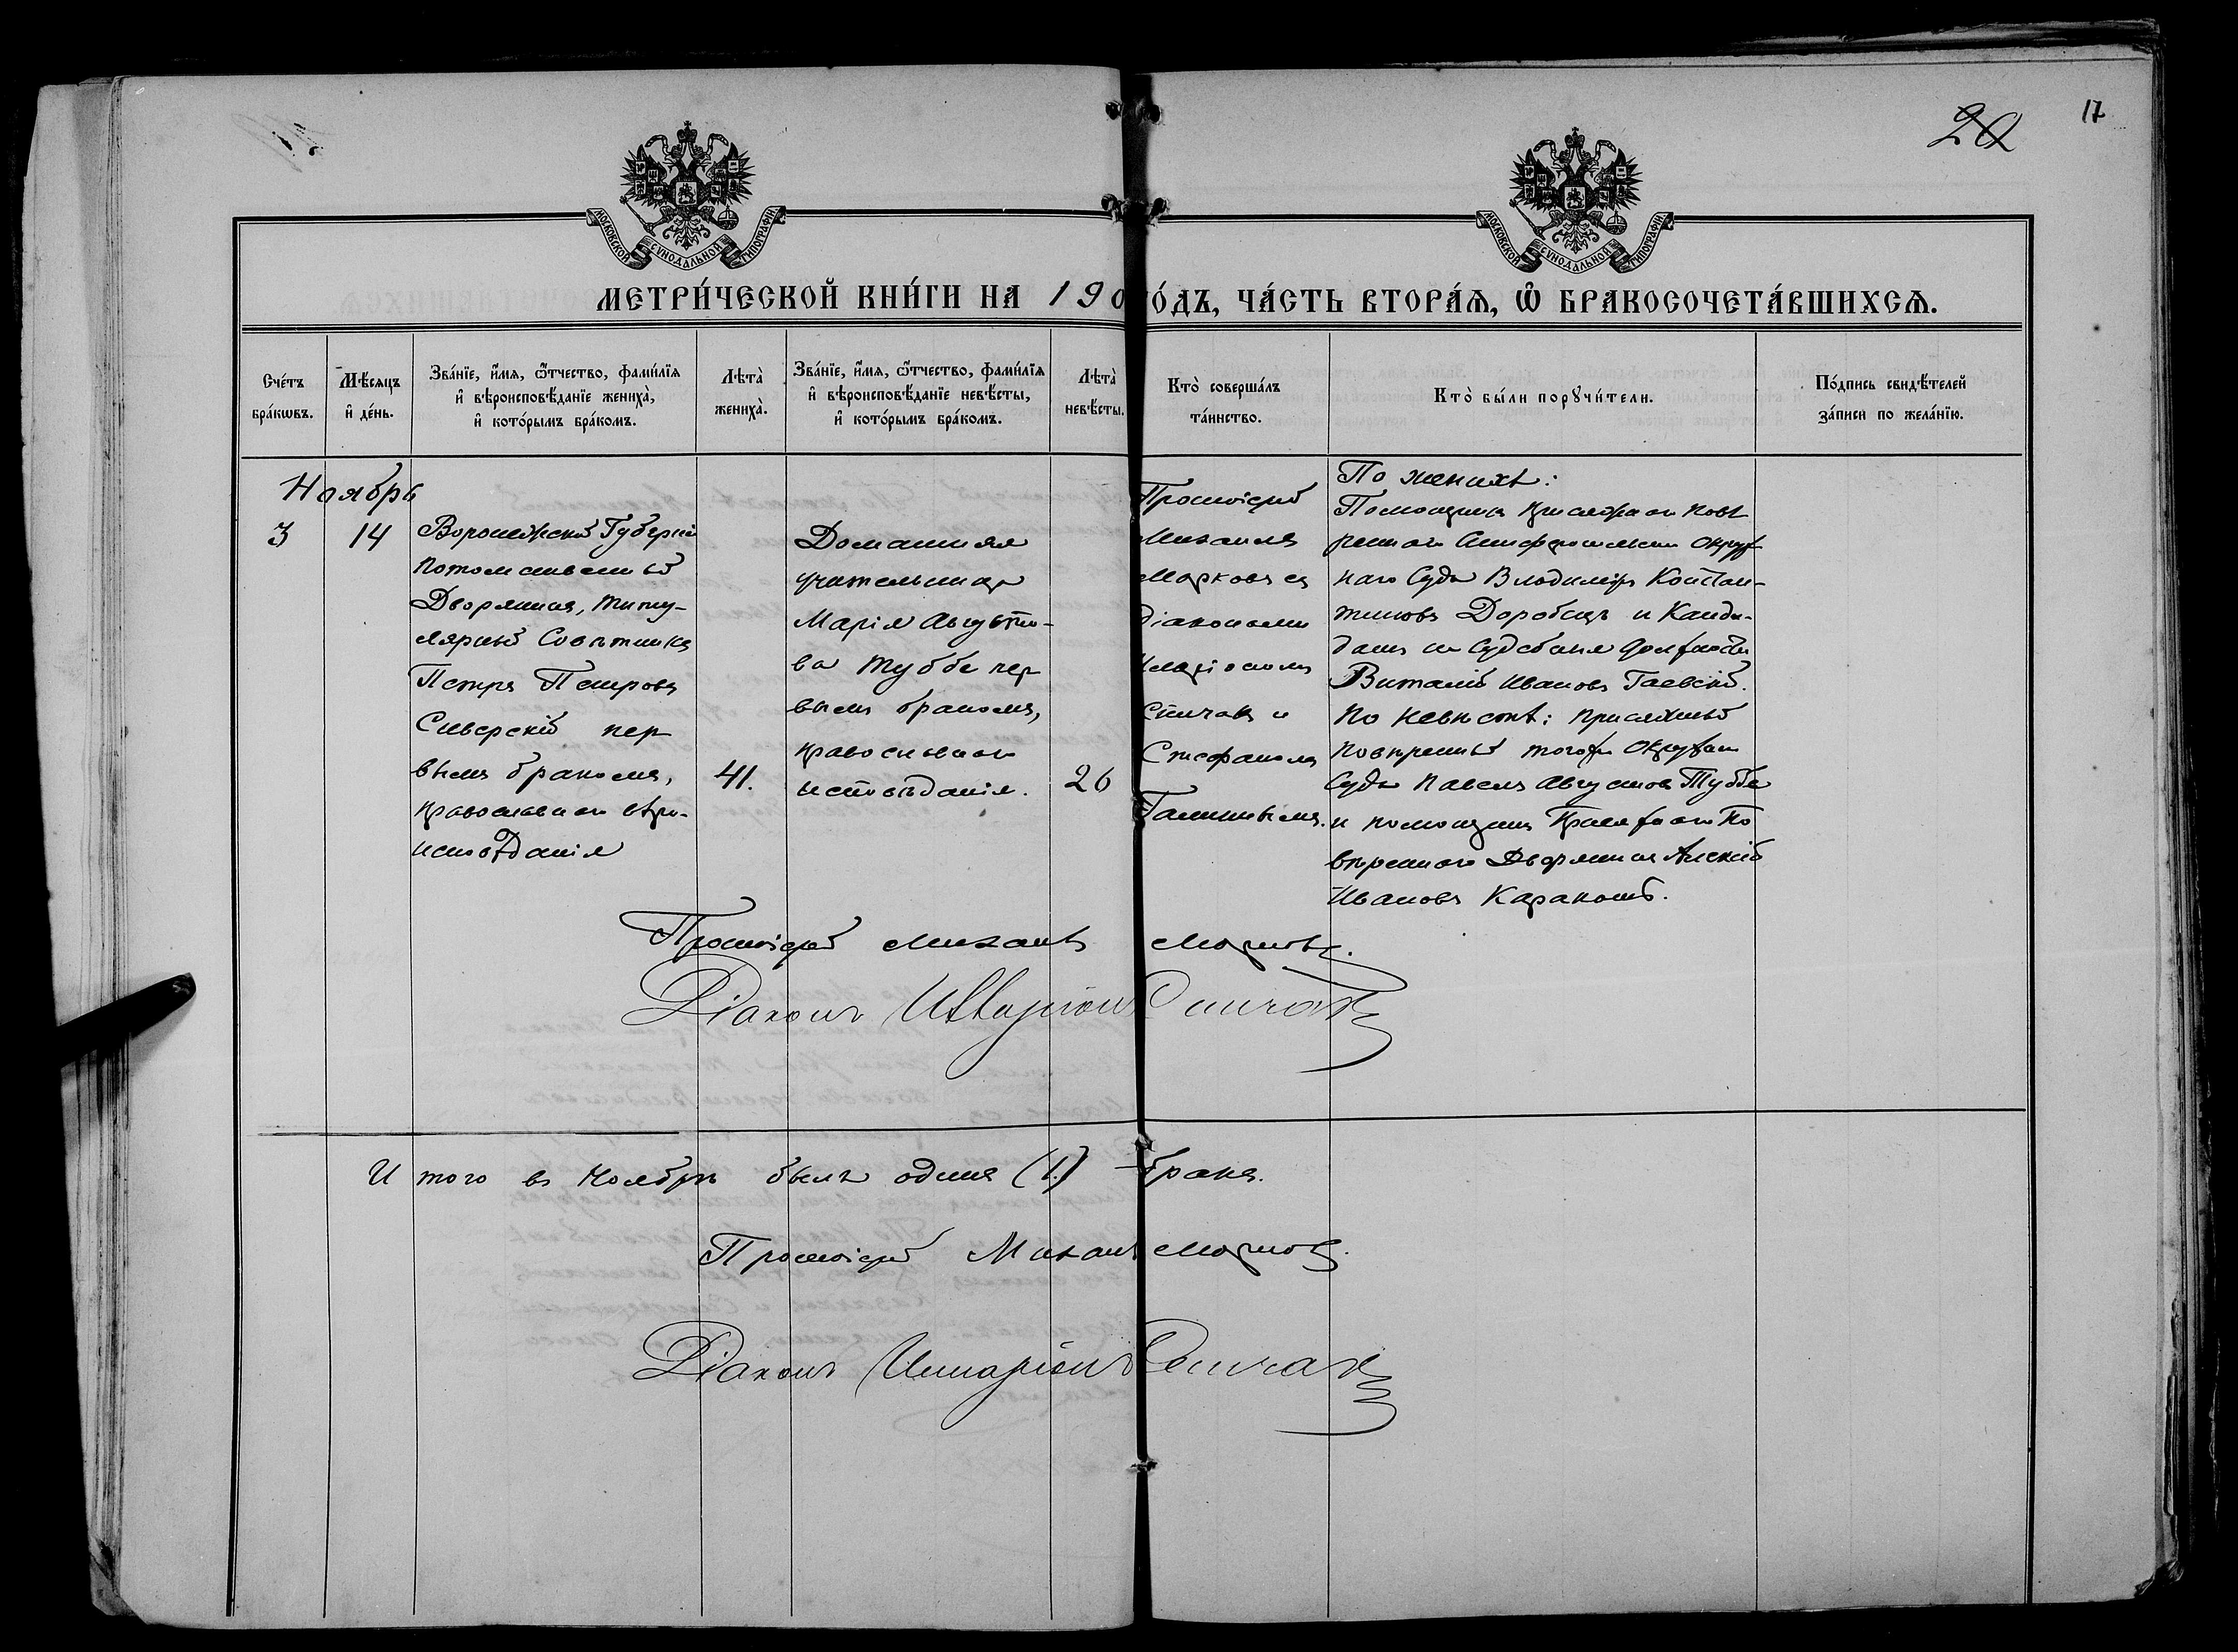 17
20
МОСКОВСКОЙ СѴНОДАЛЬНОЙ ТИПОГРАФІИ
МОСКОВСКОЙ СѴНОДАЛЬНОЙ ТИПОГРАФІИ
МЕТРИ́ЧЕСКОЙ КНИ́ГИ НА 190 ГО́ДЪ, ЧА́СТЬ ВТОРА́Я, Ѽ БРАКОСОЧЕТА́ВШИХСѦ.
Сче́тъ
бра́кѡвъ.
Мѣ́сяцъ
и҆ де́нь.
Зва́нїе, и҆́мя, ѻ҆́тчество, фами́лїя
и҆ вѣроисповѣ́данїе жениха̀,
и҆ кото́рымъ бра́комъ.
Лѣта̀
жениха̀.
Зва́нїе, и҆́мя, ѻ҆́тчество, фами́лїя
и҆ вѣроисповѣ́данїе невѣ́сты,
и҆ кото́рымъ бра́комъ.
Лѣта̀
невѣ́сты.
Кто̀ соверша́лъ
та́инство.
Кто̀ бы́ли порꙋчи́тели.
По́дпись свидѣ́телей
за́писи по жела́нїю.
Ноябрь
3
14
Воронежской Губерніи
потомственный
Дворянинъ, титу-
лярный Совѣтникъ
Петръ Петровъ
Сиверскій пер
вымъ бракомъ,
православнаго вѣро-
исповѣданія
41.
Домашняя
учительница
Марія Августо-
ва Туббе пер
вымъ бракомъ,
православнаго
исповѣданія.
26
Протоіерей
Михаилъ
Марковъ съ
діаконами
Иларіономъ
Спичакъ и
Стефаномъ
По женихѣ:
Помощникъ присяжнаго повѣ
реннаго Симферопольскаго Окруж
наго Суда Владиміръ Констан-
тиновъ Доробецъ и Канди-
датъ на Судебныя должности
Виталій Ивановъ Гаевскій.
По невѣстѣ: присяжный
повѣренный тогоже Окружнаго
Суда Павелъ Августовъ Туббе
и помощникъ Присяжнаго По
вѣреннаго Дворянинъ Алексій
Ивановъ Каракошъ.
Протоіерей Михаилъ Марковъ.
Діаконъ Илларіонъ Спичакъ
И того въ Ноябрѣ былъ одинъ (1.) бракъ.
Протоіерей Михаилъ Марковъ.
Діаконъ Иларіонъ Спичакъ